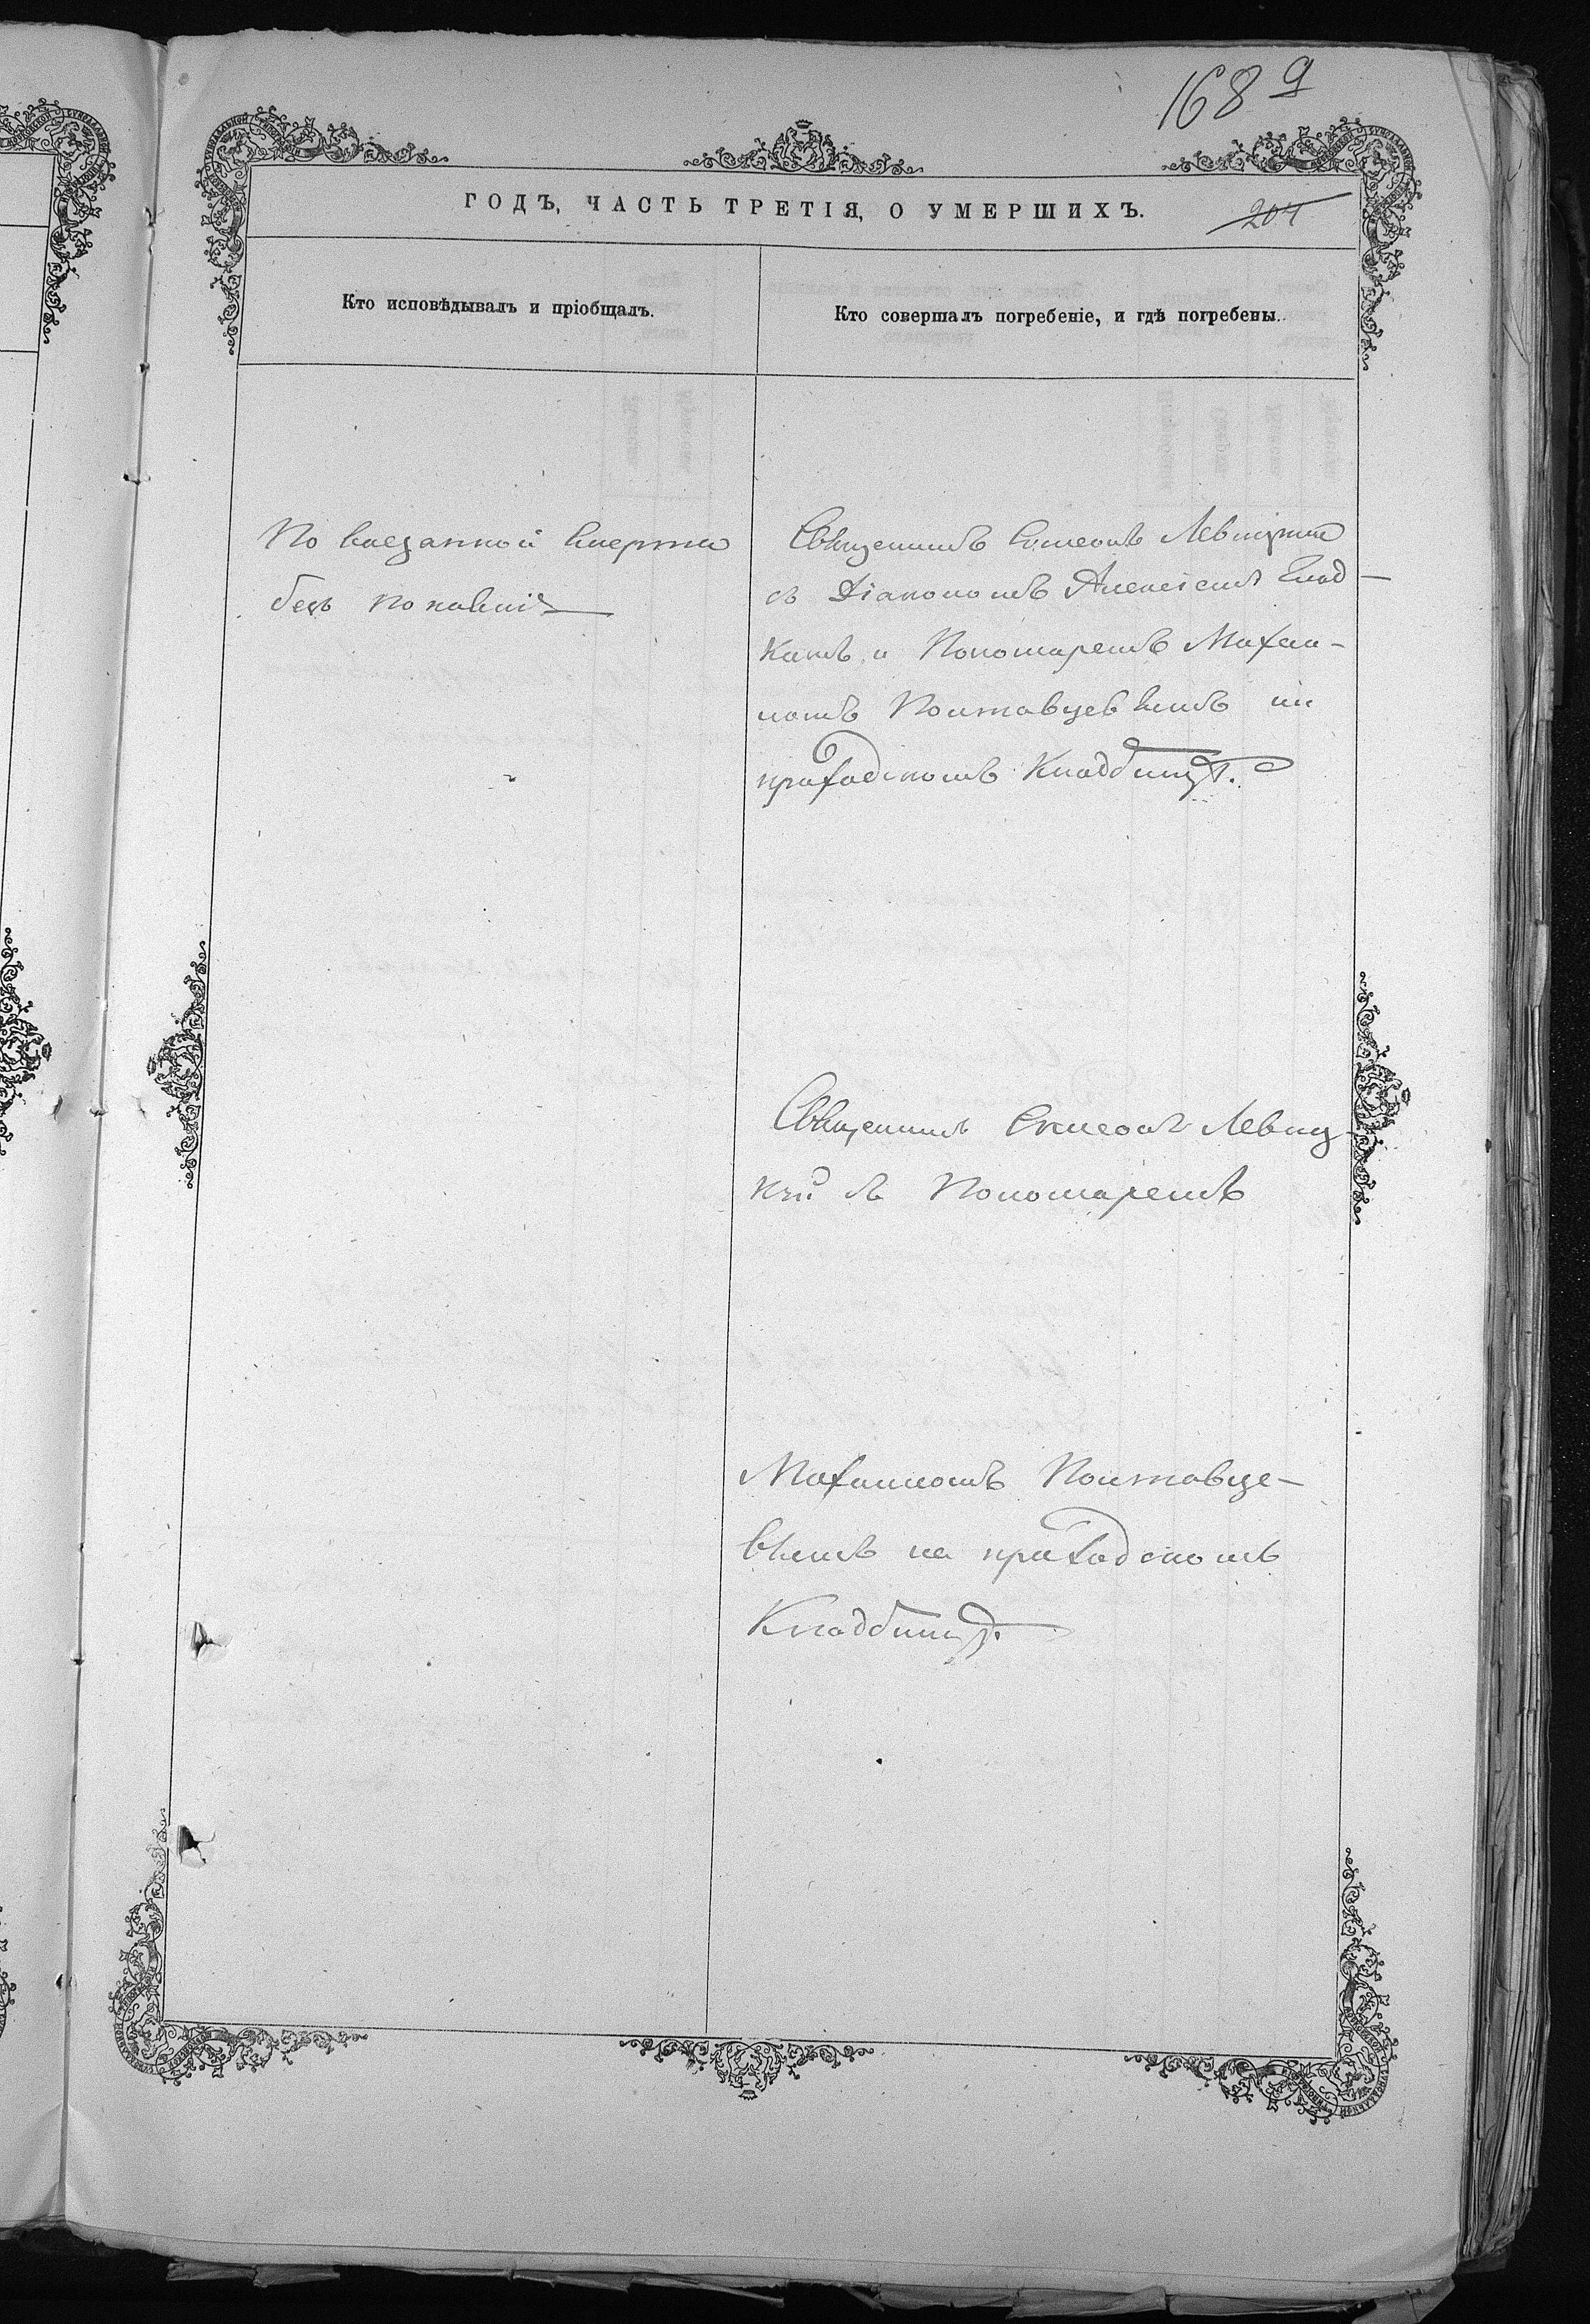 168 9
ГОДЪ, ЧАСТЬ ТРЕТІЯ, О УМЕРШИХЪ.
204
Кто исповѣдывалъ и пріобщалъ.
Кто совершалъ погребеніе, и гдѣ погребены.
По внезапной смерти
безъ покаянія
Священникъ Симеонъ Левицкій
съ Діакономъ Алексіемъ
и Пономаремъ Михаи-
ломъ Полтавцевымъ на
приходскомъ Кладбищѣ.
Священникъ Симеонъ Левиц-
кій съ Пономаремъ
Михаиломъ Полтавце-
вымъ на приходскомъ
Кладбищѣ.